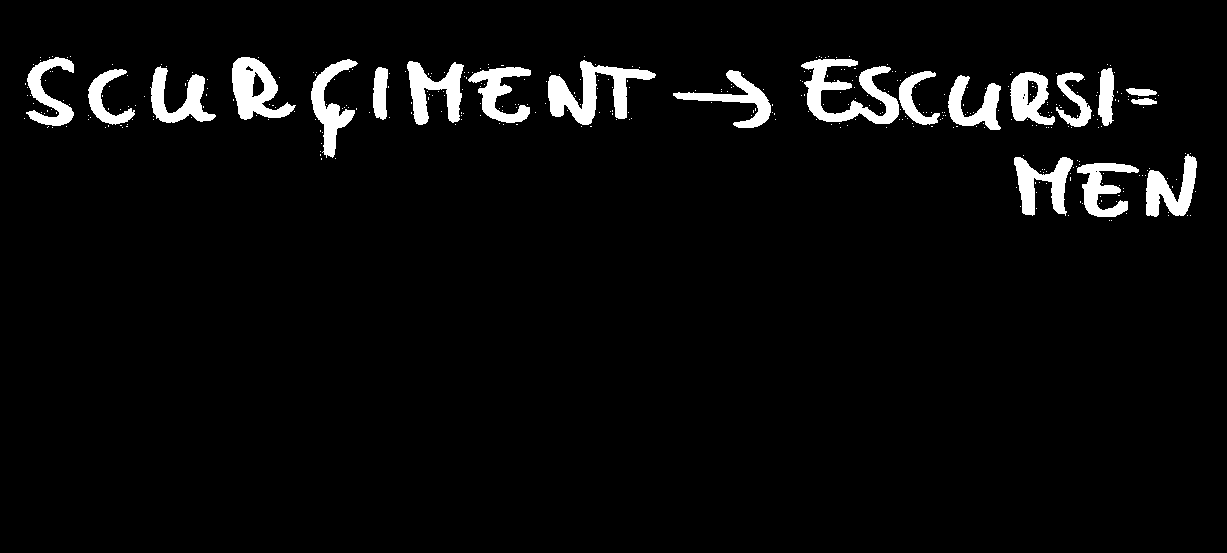 SCURÇIMENT → ESCURSI=
MEN